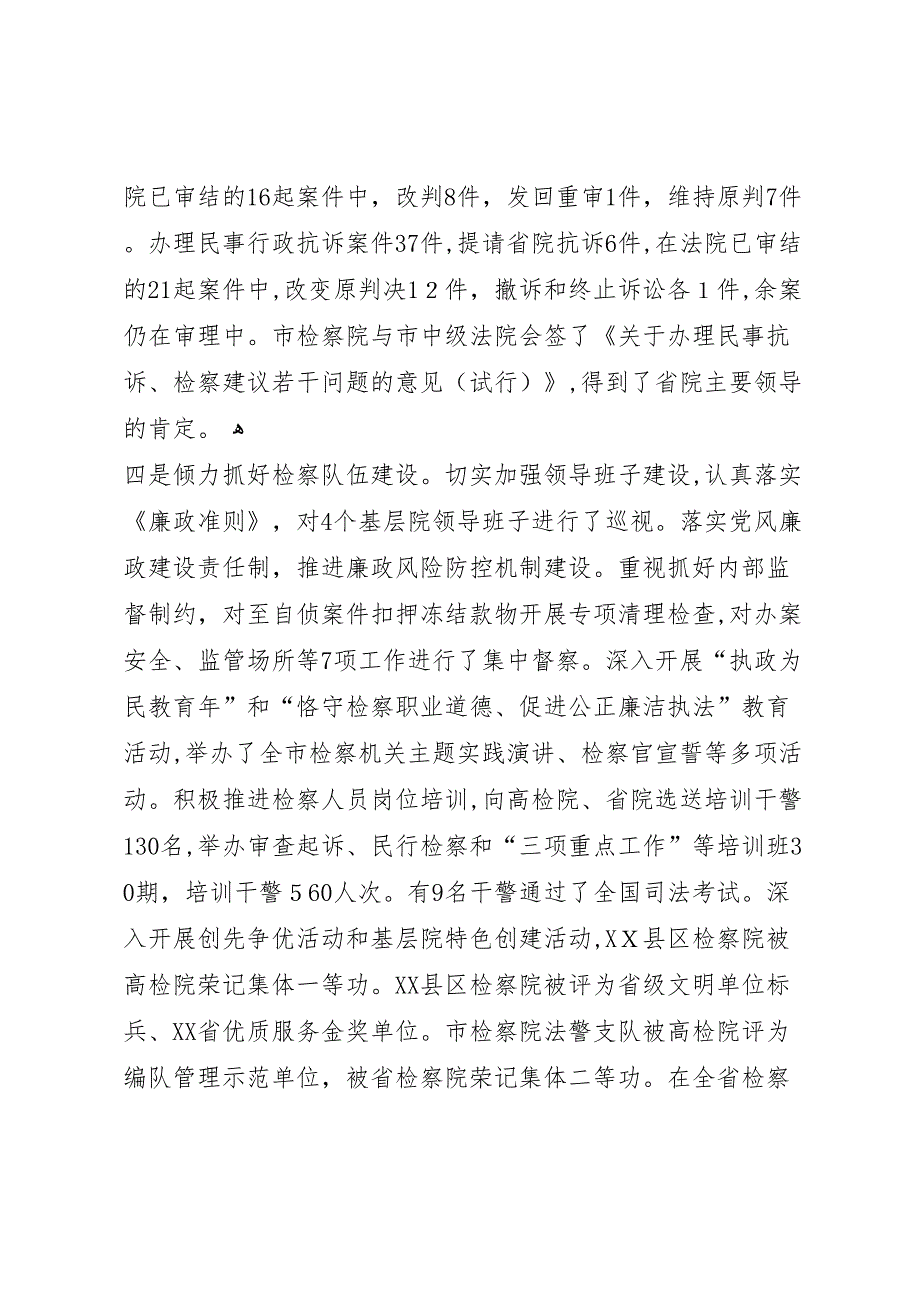 院已审结的16起案件中，改判8件，发回重审1件，维持原判7件
。办理民事行政抗诉案件37件,提请省院抗诉6件,在法院已审结
的21起案件中,改变原判决1２件，撤诉和终止诉讼各１件,余案
仍在审理中。市检察院与市中级法院会签了《关于办理民事抗
诉、检察建议若干问题的意见（试行）》,得到了省院主要领导
的肯定。 ﻫ
四是倾力抓好检察队伍建设。切实加强领导班子建设,认真落实
《廉政准则》，对4个基层院领导班子进行了巡视。落实党风廉
政建设责任制，推进廉政风险防控机制建设。重视抓好内部监
督制约，对至自侦案件扣押冻结款物开展专项清理检查,对办案
安全、监管场所等7项工作进行了集中督察。深入开展“执政为
民教育年”和“恪守检察职业道德、促进公正廉洁执法”教育
活动,举办了全市检察机关主题实践演讲、检察官宣誓等多项活
动。积极推进检察人员岗位培训,向高检院、省院选送培训干警
130名,举办审查起诉、民行检察和“三项重点工作”等培训班3
0期，培训干警５60人次。有9名干警通过了全国司法考试。深
入开展创先争优活动和基层院特色创建活动,XＸ县区检察院被
高检院荣记集体一等功。XX县区检察院被评为省级文明单位标
兵、XX省优质服务金奖单位。市检察院法警支队被高检院评为
编队管理示范单位，被省检察院荣记集体二等功。在全省检察